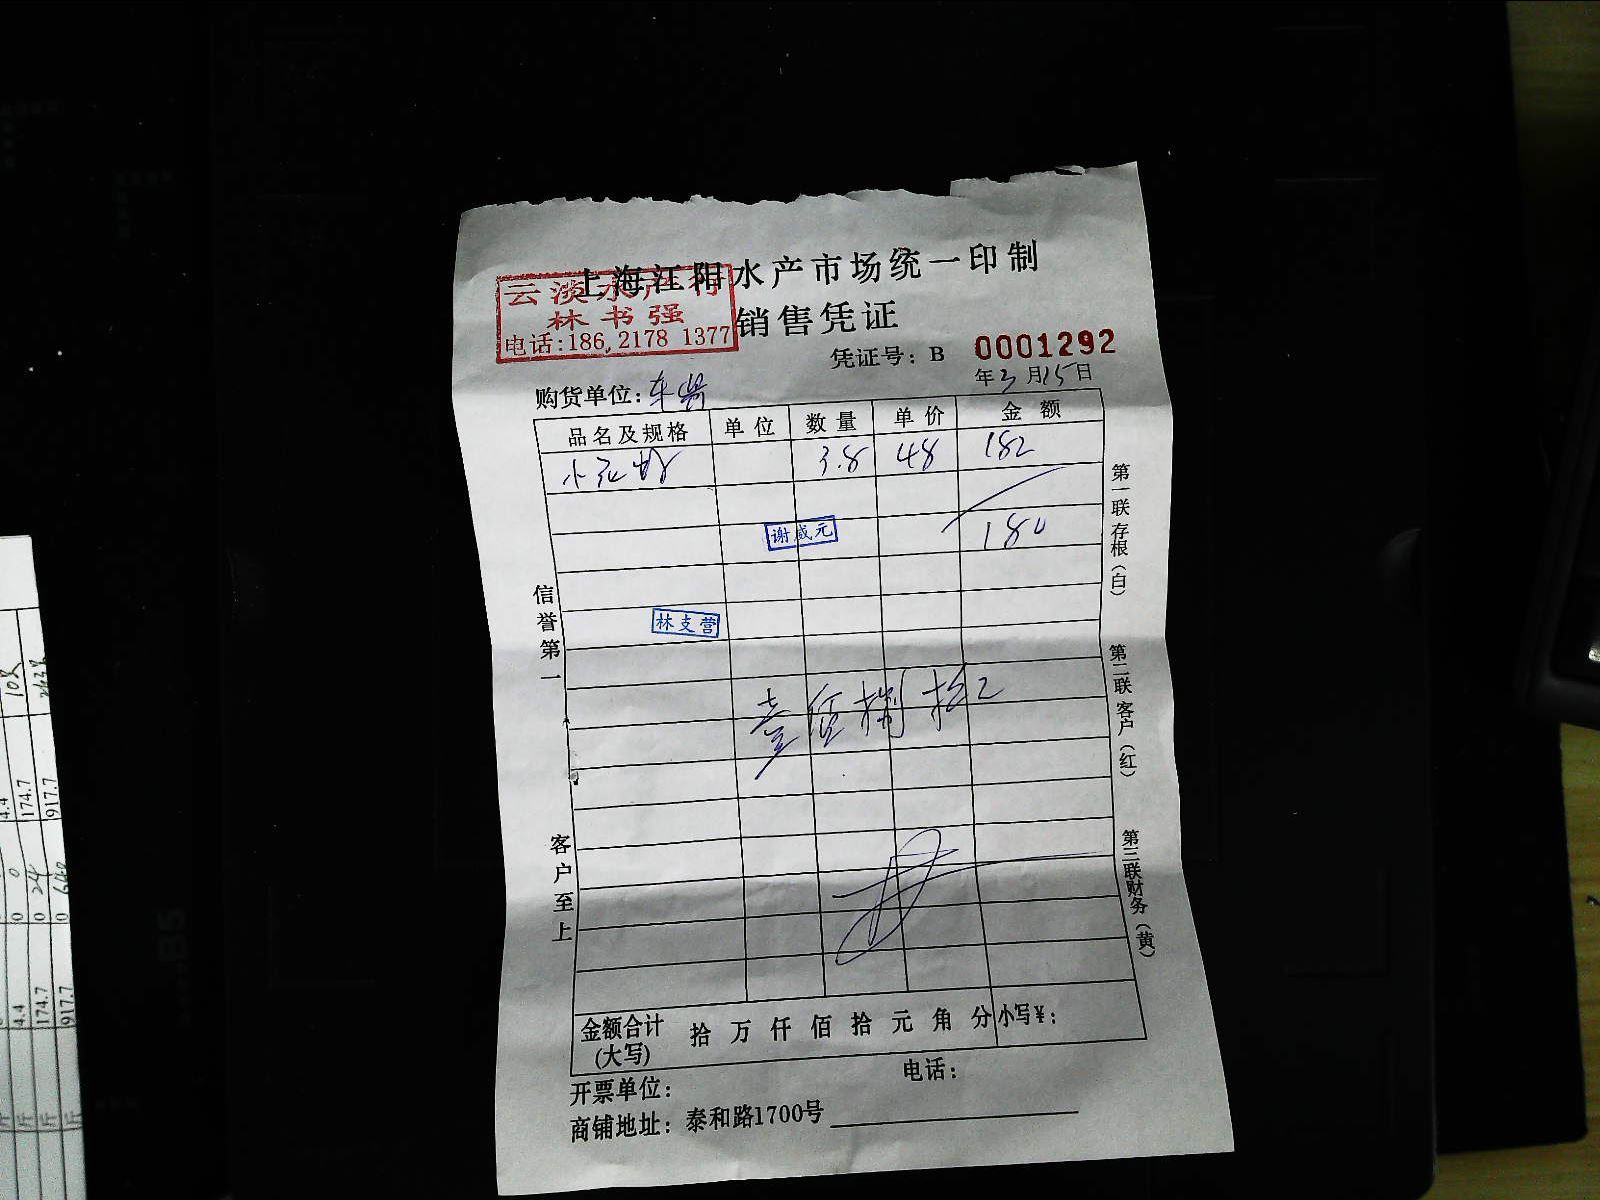 上海江阳水产市场统一印制
云淡水产行
林书强
电话:186,2178 1377
销售凭证
凭证号：B 0001292
年3月15日
购货单位：
品名及规格 单位 数量 单价 金额
小红虾 3.8 48 182
180
谢咸元
林支营
壹佰捌拾
信誉第一
客户至上
第一联存根（白）
第二联客户（红）
第三联财务（黄）
金额合计(大写) 拾 万 仟 佰 拾 元 角 分 小写¥：
开票单位： 电话：
商铺地址：泰和路1700号
10
4.4
174.7
917.7
0
0
24
0
0
0
4.4
174.7
917.7
斤
斤
斤
B5